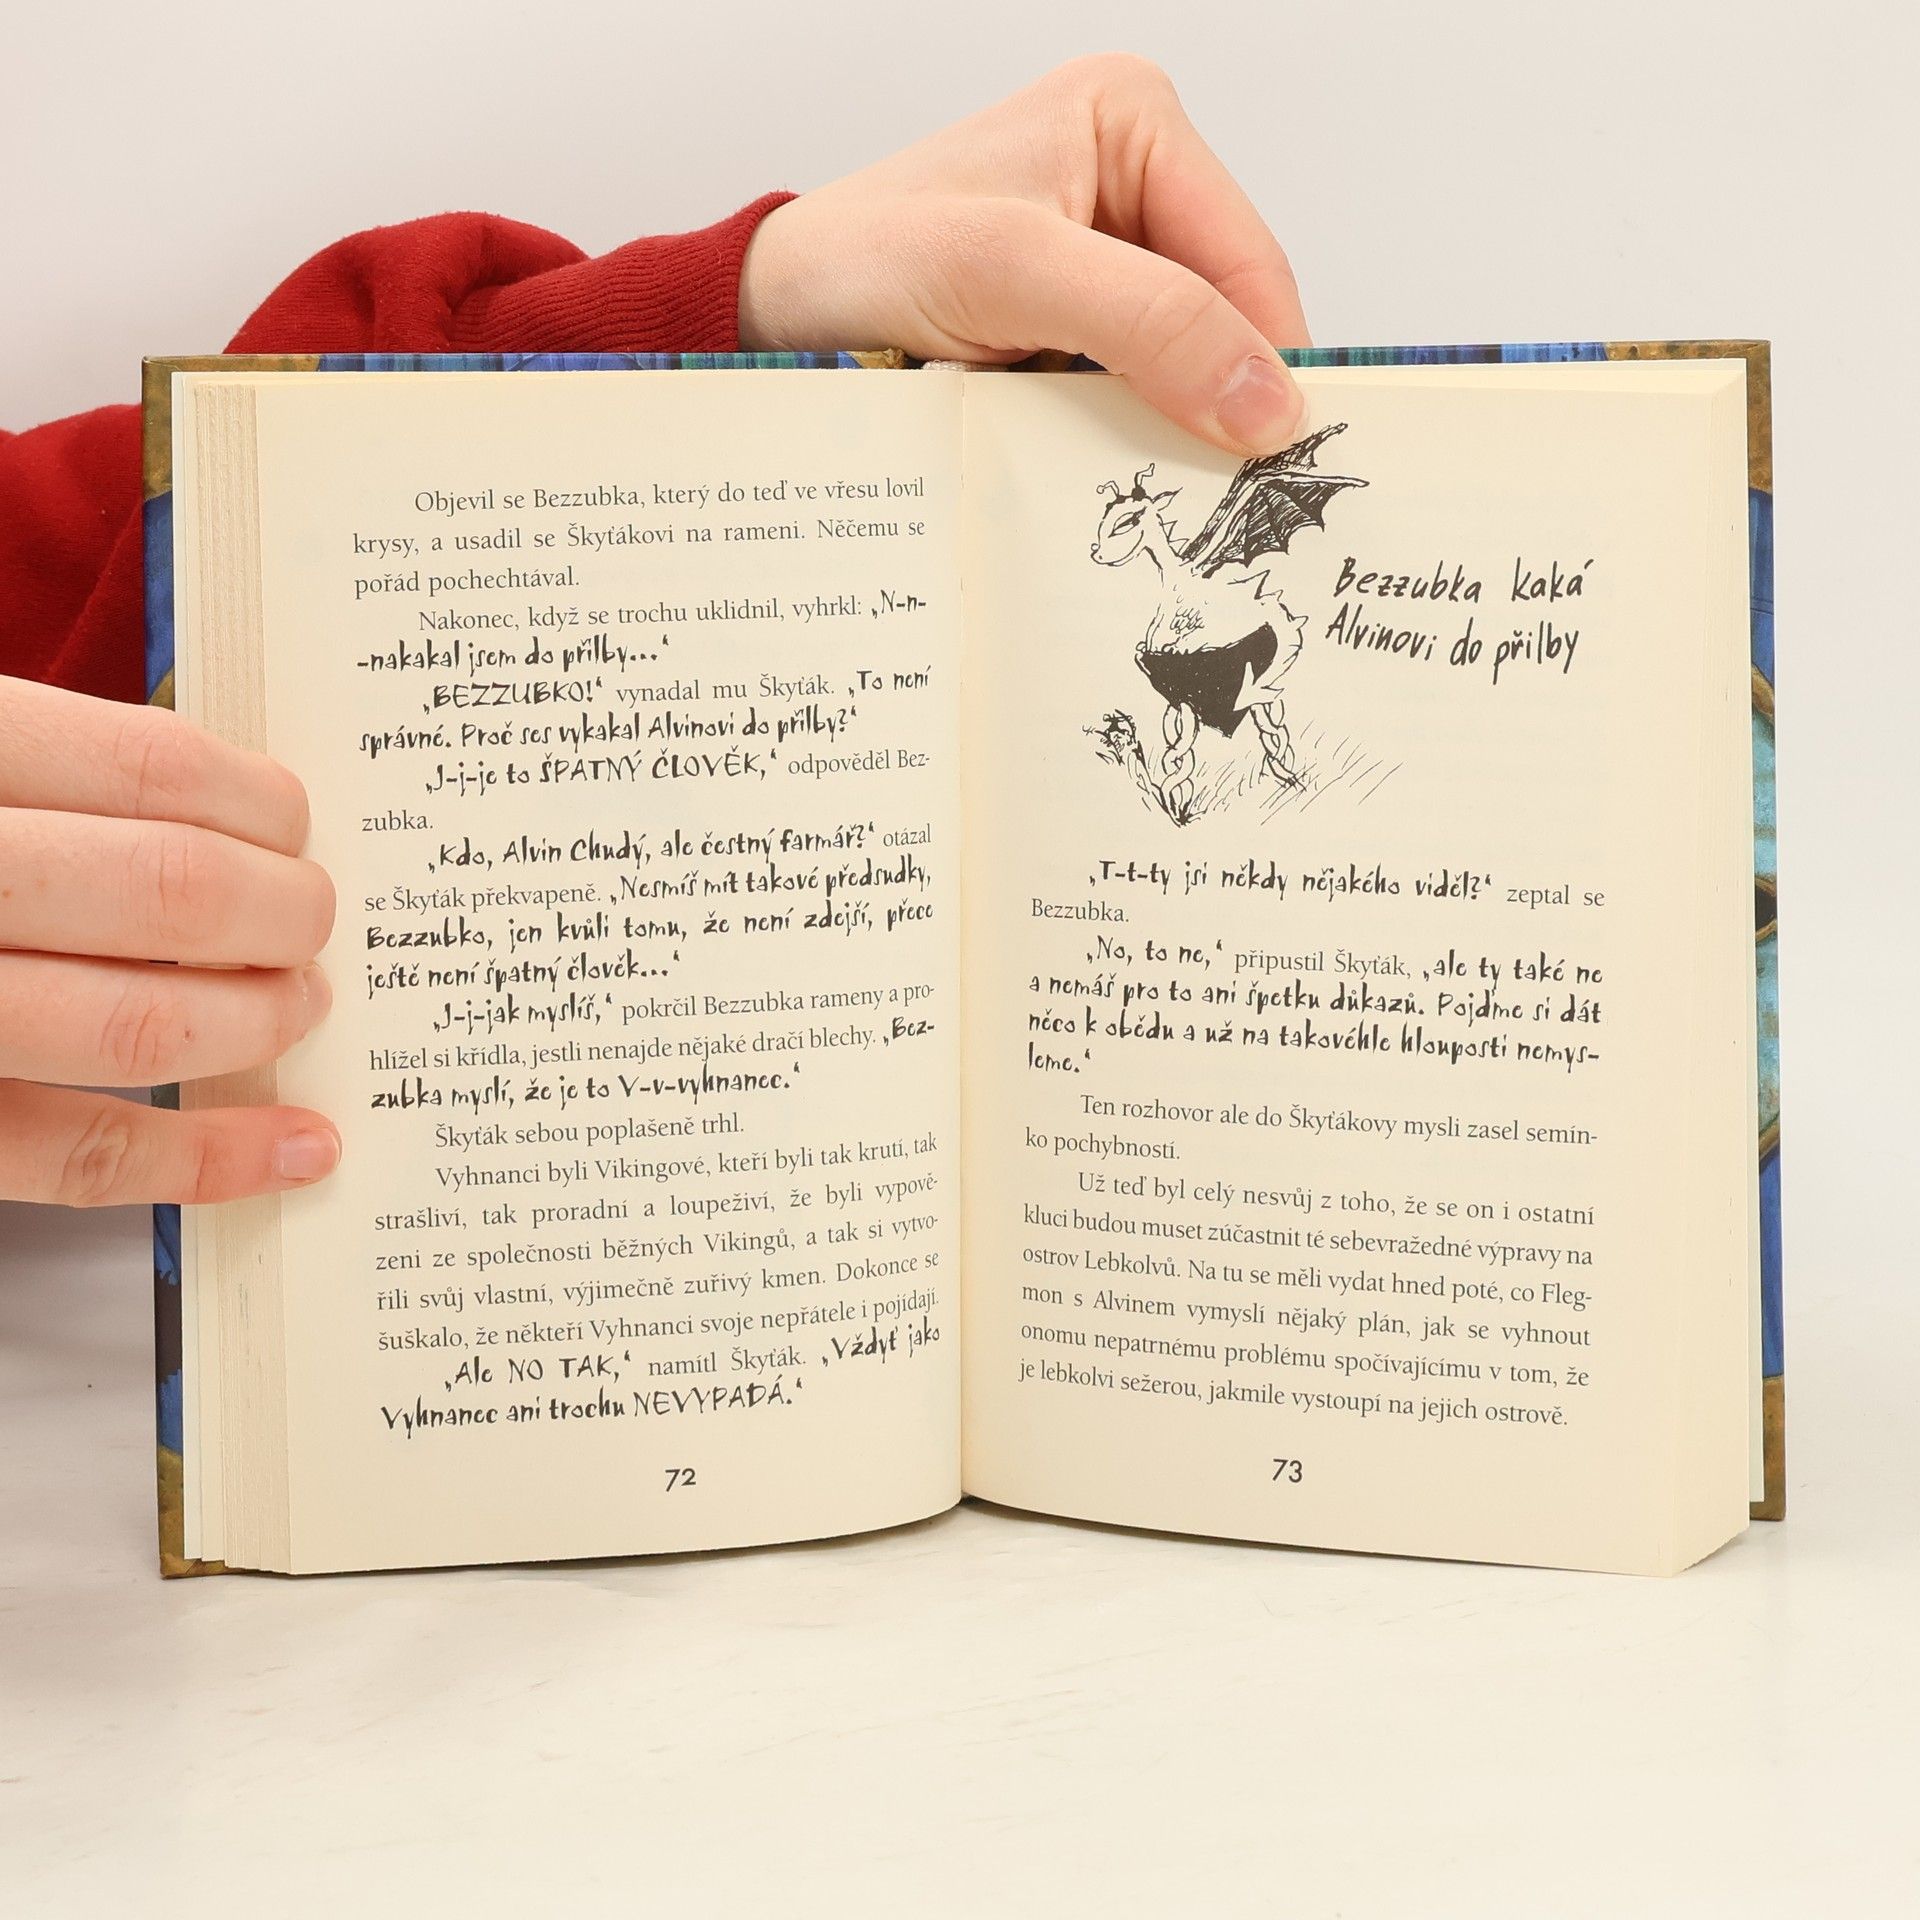 Objevil se Bezzubka, který do teď ve vřesu lovil
krysy, a usadil se Škyťákovi na rameni. Něčemu se
pořád pochechtával.
Nakonec, když se trochu uklidnil, vyhrkl: „N-n-
-nakakal jsem do přilby...“
„BEZZUBKO!“ vynadal mu Škyťák. „To není
správné. Proč ses vykakal Alvinovi do přilby?“
„J-j-je to ŠPATNÝ ČLOVĚK,“ odpověděl Bez-
zubka.
„Kdo, Alvin Chudý, ale čestný farmář?“ otázal
se Škyťák překvapeně. „Nesmíš mít takové předsudky,
Bezzubko, jen kvůli tomu, že není zdejší, přece
ještě není špatný člověk...“
„J-j-jak myslíš,“ pokrčil Bezzubka rameny a pro-
hlížel si křídla, jestli nenajde nějaké dračí blechy. „Bez-
zubka myslí, že je to V-v-vyhnanec.“
Škyťák sebou poplašeně trhl.
Vyhnanci byli Vikingové, kteří byli tak krutí, tak
strašliví, tak proradní a loupeživí, že byli vypově-
zeni ze společnosti běžných Vikingů, a tak si vytvo-
řili svůj vlastní, výjimečně zuřivý kmen. Dokonce se
šuškalo, že někteří Vyhnanci svoje nepřátele i pojídají.
„Ale NO TAK,“ namítl Škyťák. „Vždyť jako
Vyhnanec ani trochu NEVYPADÁ.“
72
Bezzubka kaká
Alvinovi do přilby
„T-t-ty jsi někdy nějakého viděl?“ zeptal se
Bezzubka.
„No, to ne,“ připustil Škyťák, „ale ty také ne
a nemáš pro to ani špetku důkazů. Pojďme si dát
něco k obědu a už na takovéhle hlouposti nemys-
leme.“
Ten rozhovor ale do Škyťákovy mysli zasel semín-
ko pochybností.
Už teď byl celý nesvůj z toho, že se on i ostatní
kluci budou muset zúčastnit té sebevražedné výpravy na
ostrov Lebkolvů. Na tu se měli vydat hned poté, co Fleg-
mon s Alvinem vymyslí nějaký plán, jak se vyhnout
onomu nepatrnému problému spočívajícímu v tom, že
je lebkolvi sežerou, jakmile vystoupí na jejich ostrově.
73